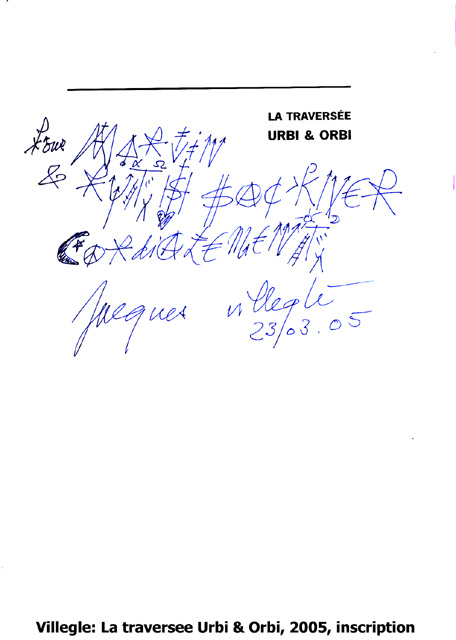 LA TRAVERSÉE
URBI & ORBI
Pour MARViN
& RUTH SACKNER
CORdiALEMENT
Jacques villeglé
23/03.05
Villegle: La traversee Urbi & Orbi, 2005, inscription